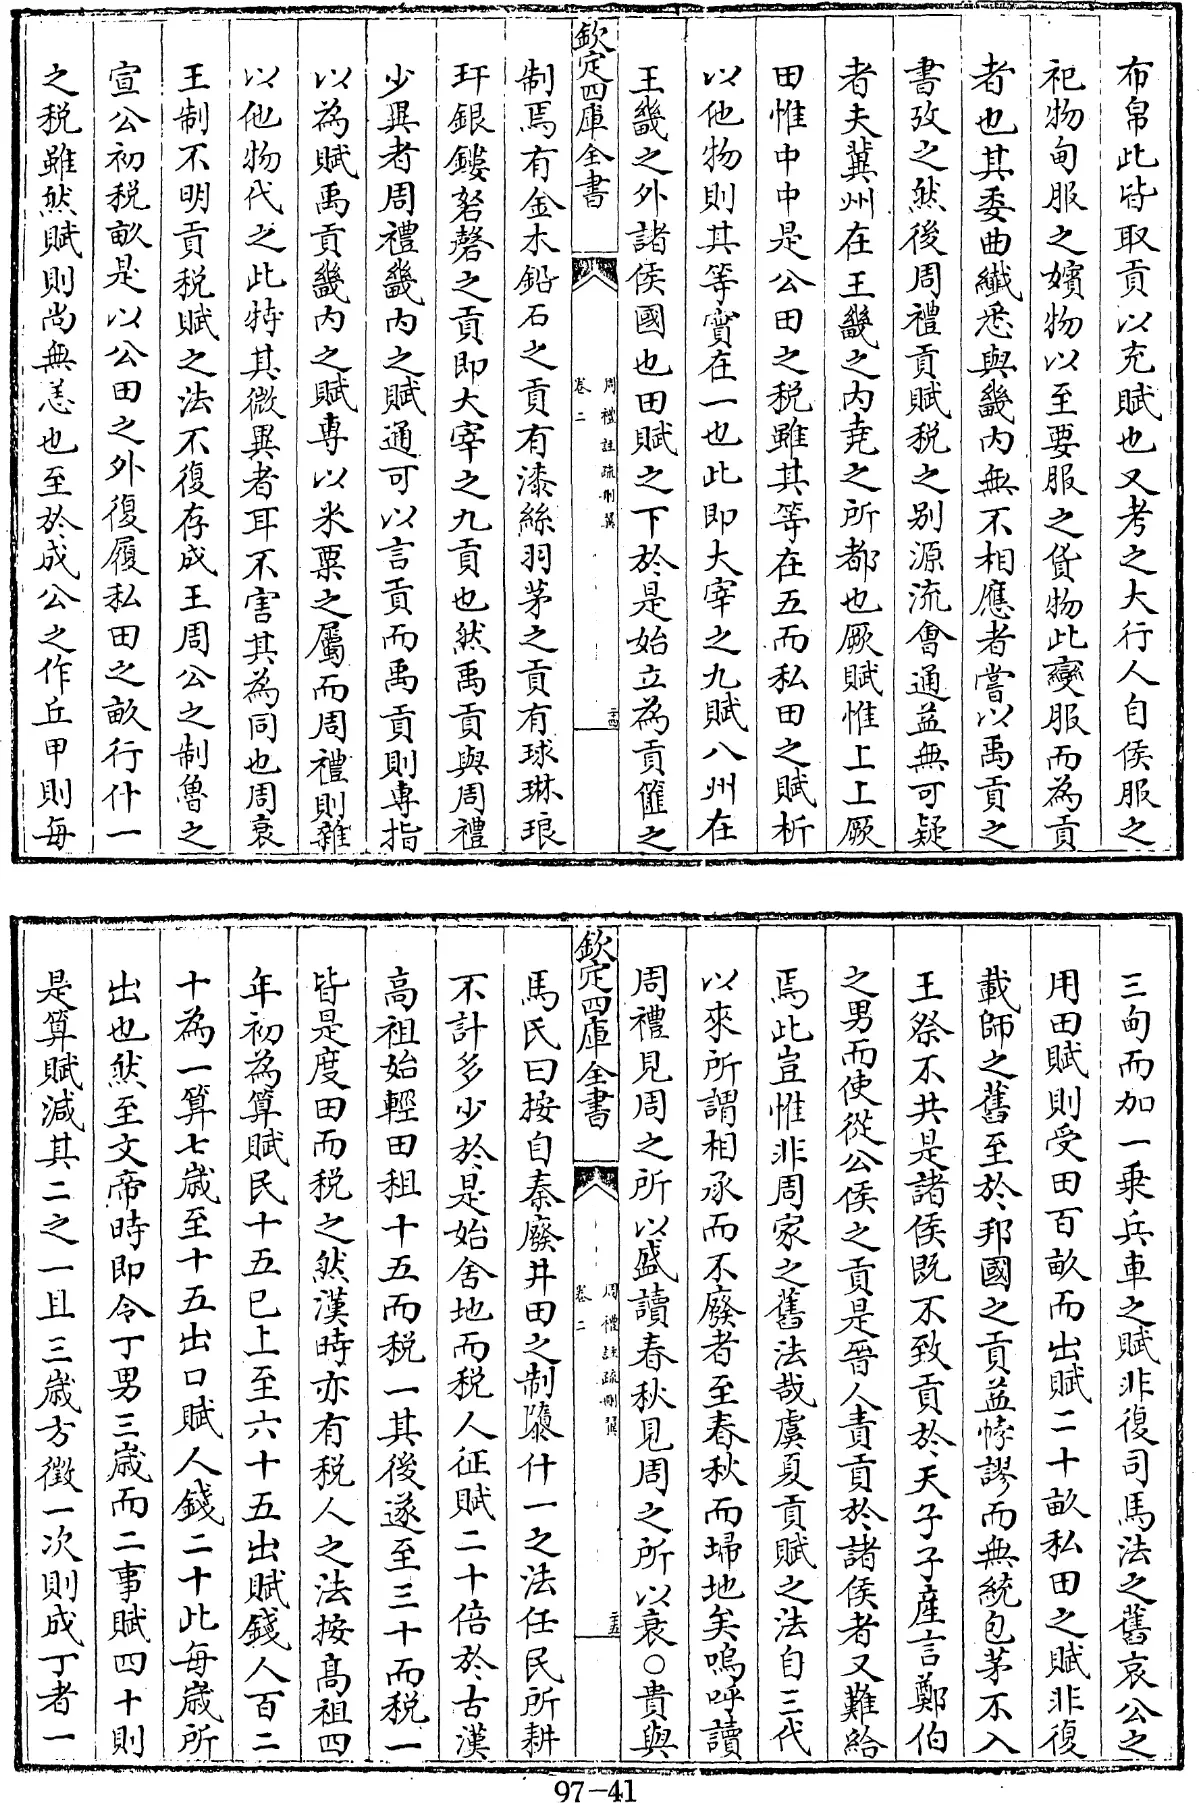 布帛此皆取貢以充賦也又考之大行人自侯服之
祀物甸服之嬪物以至要服之貨物此變服而為貢
者也其委曲纖悉與畿内無不相應者嘗以禹貢之
書攷之然後周禮貢賦税之别源流會通益無可疑
者夫冀州在王畿之内堯之所都也厥賦惟上上厥
田惟中中是公田之税雖其等在五而私田之賦析
以他物則其等實在一也此即大宰之九賦八州在
王畿之外諸侯國也田賦之下於是始立為貢篚之
欽定四庫全書
周禮註疏刪翼
卷二
二十四
制焉有金木鉛石之貢有漆絲羽茅之貢有球琳琅
玕銀鏤砮磬之貢即大宰之九貢也然禹貢與周禮
少異者周禮畿内之賦通可以言貢而禹貢則專指
以為賦禹貢畿内之賦專以米粟之屬而周禮則雜
以他物代之此特其微異者耳不害其為同也周衰
王制不明貢税賦之法不復存成王周公之制魯之
宣公初税畝是以公田之外復履私田之畝行什一
之税雖然賦則尚無恙也至於成公之作丘甲則每
三甸而加一乗兵車之賦非復司馬法之舊哀公之
用田賦則受田百畝而出賦二十畝私田之賦非復
載師之舊至於邦國之貢益悖謬而無統包茅不入
王祭不共是諸侯既不致貢於天子子産言鄭伯
之男而使從公侯之貢是晉人責貢於諸侯者又難給
焉此豈惟非周家之舊法哉虞夏貢賦之法自三代
以來所謂相承而不廢者至春秋而埽地矣嗚呼讀
周禮見周之所以盛讀春秋見周之所以衰○貴與
欽定四庫全書
周禮註疏刪翼
卷二
二十五
馬氏曰按自秦廢井田之制隳什一之法任民所耕
不計多少於是始舍地而税人征賦二十倍於古漢
高祖始輕田租十五而税一其後遂至三十而税一
皆是度田而税之然漢時亦有税人之法按髙祖四
年初為算賦民十五已上至六十五出賦錢人百二
十為一算七歳至十五出口賦人錢二十此每歳所
出也然至文帝時即令丁男三歳而一事賦四十則
是算賦減其三之二且三歳方徵一次則成丁者一
97-41